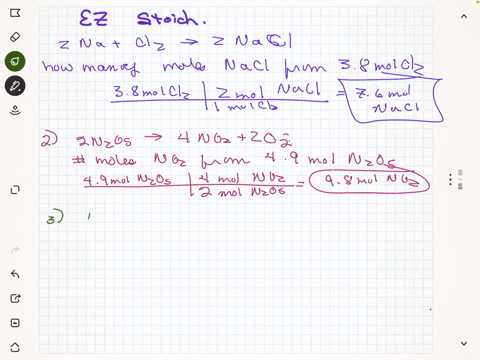 EZ Stoich.
2 Na + Cl2 → 2 NaCl
how many moles NaCl from 3.8 mol Cl2
3.8 mol Cl2 | 2 mol NaCl = 7.6 mol NaCl
1 mol Cl2
2) 2N2O5 → 4 NO2 + 2O2
# moles NO2 from 4.9 mol N2O5
4.9 mol N2O5 | 4 mol NO2 = 9.8 mol NO2
2 mol N2O5
3)